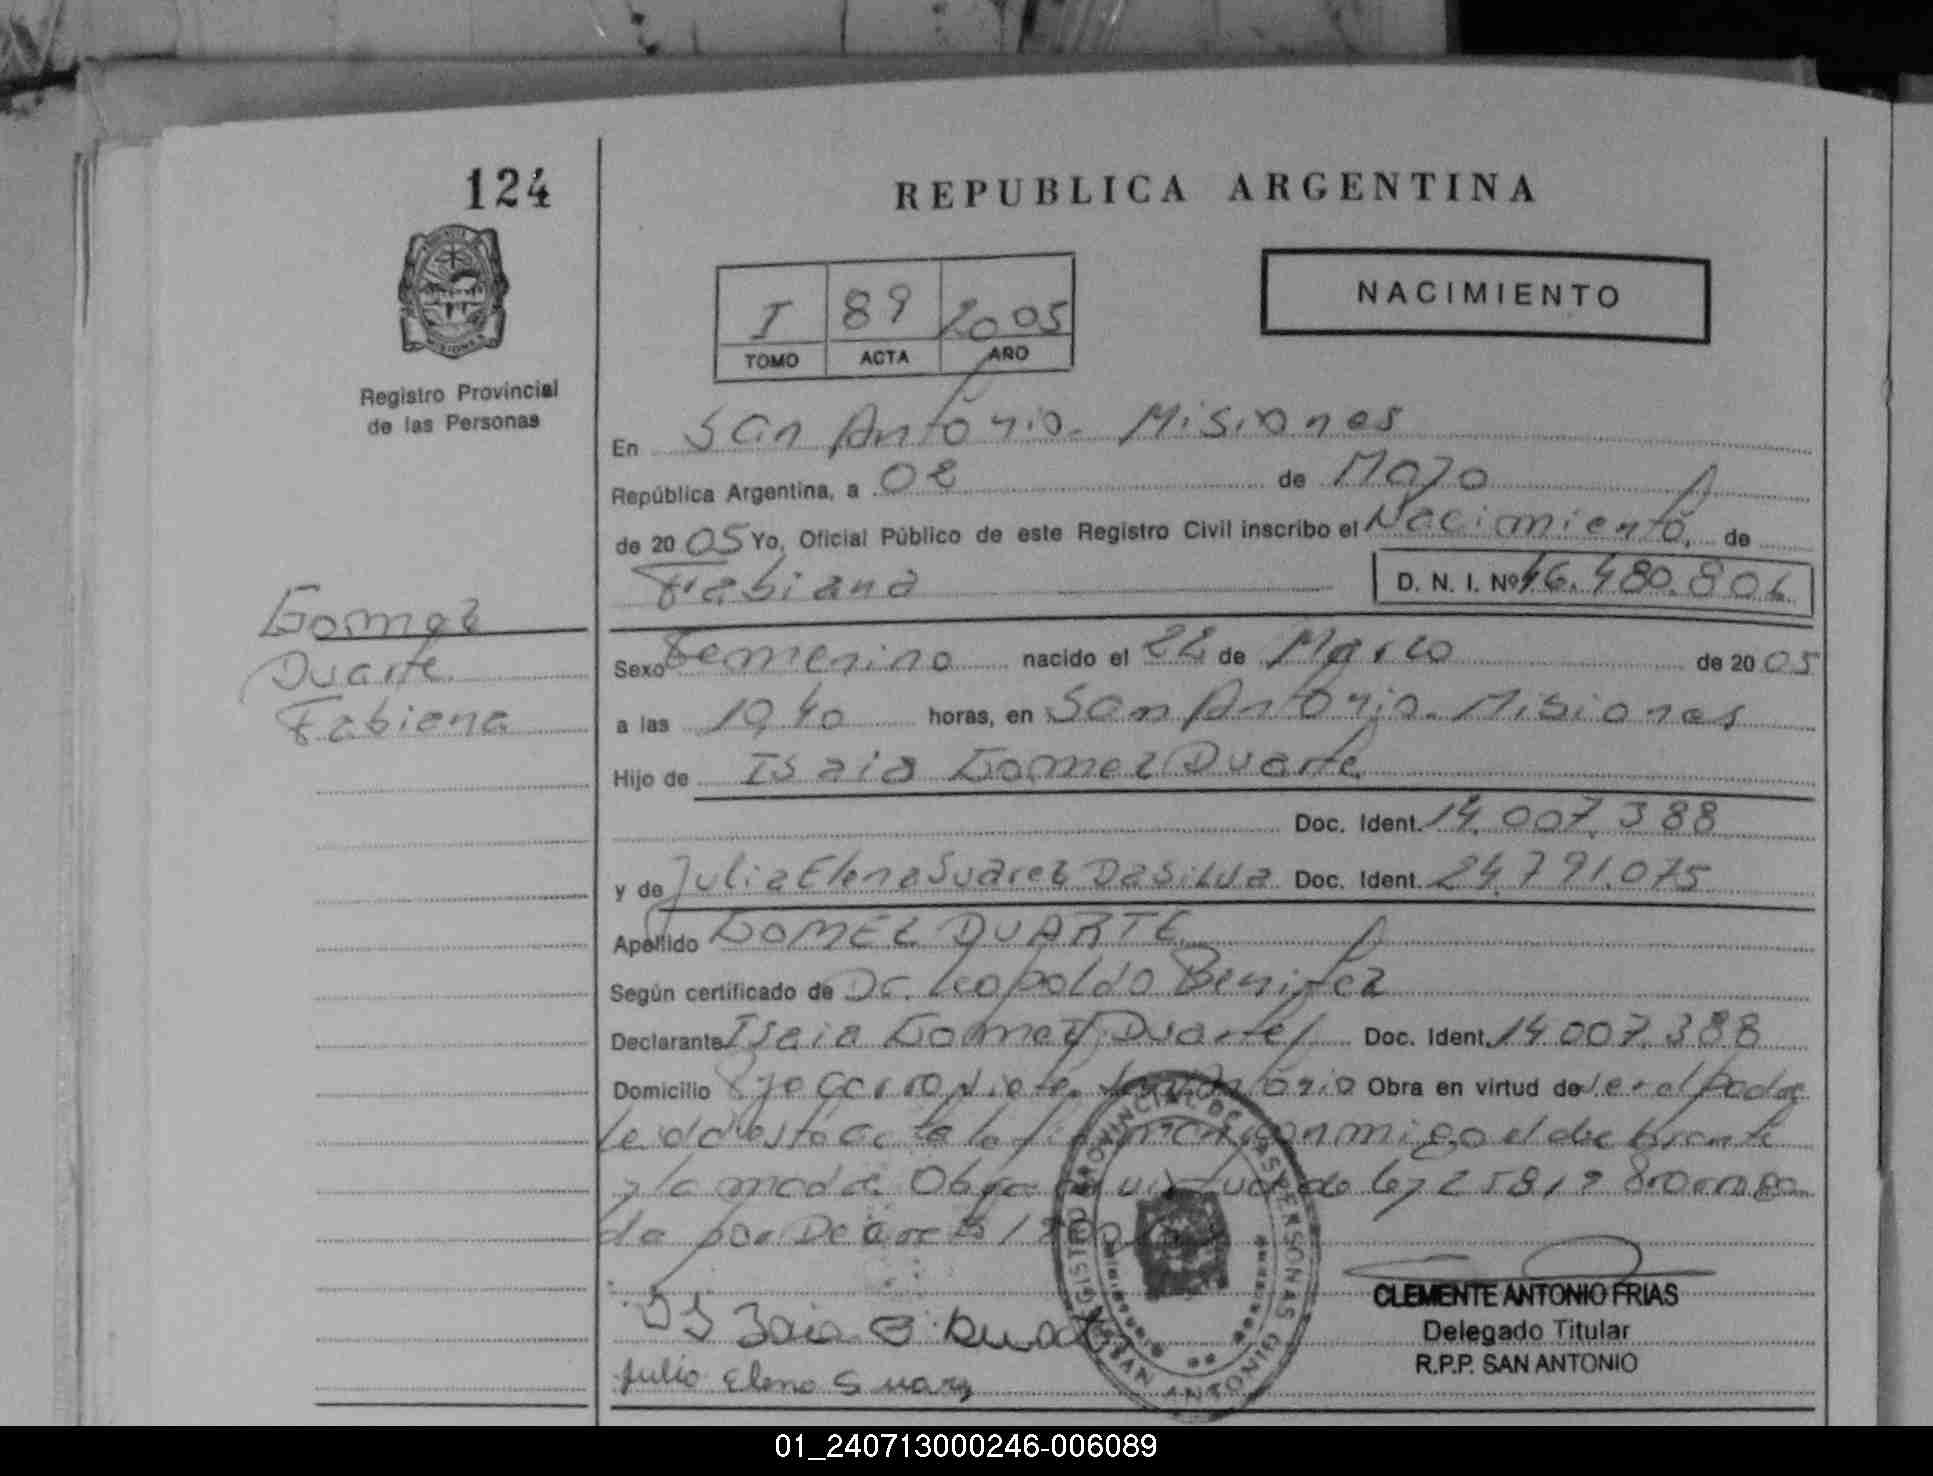 124
REPUBLICA ARGENTINA
NACIMIENTO
I 89 2005
TOMO ACTA AÑO
Registro Provincial
de las Personas
En San Antonio. Misiones
República Argentina, a 02 de Mayo
de 2005 Yo, Oficial Público de este Registro Civil inscribo el Nacimiento, de
Fabiana D. N. I. Nº 46.480.806
Gomez
Duarte
Fabiana
Sexo Femenino nacido el 22 de Marzo de 2005
a las 10,40 horas, en San Antonio. Misiones
Hijo de Isaia Gomez Duarte
Doc. Ident. 14.007.388
y de Julia Elena Suarez Da Silva Doc. Ident. 24.791.075
Apellido GOMEZ DUARTE
Según certificado de Dr. Leopoldo Benitez
Declarante Isaia Gomez Duarte Doc. Ident. 14.007.388
Domicilio San Antonio Obra en virtud de ser el padre
Leida esta acta la firman conmigo el declarante
y la madre Obra en virtud de Ley
da por Decreto
REGISTRO PROVINCIAL DE LAS PERSONAS
SAN ANTONIO
ISZaia G Duarte
Julia Elena Suarez
CLEMENTE ANTONIO FRIAS
Delegado Titular
R.P.P. SAN ANTONIO
01_240713000246-006089